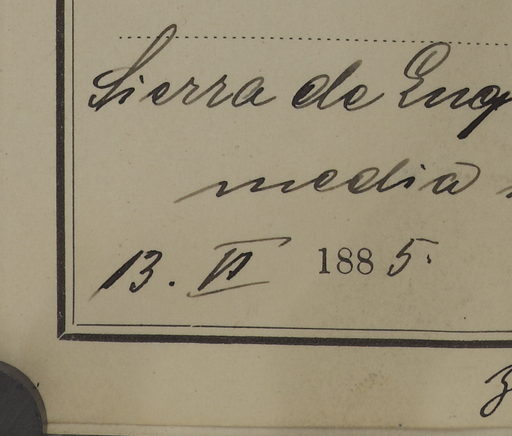 Sierra de Eng
media
13. VI 1885.
3